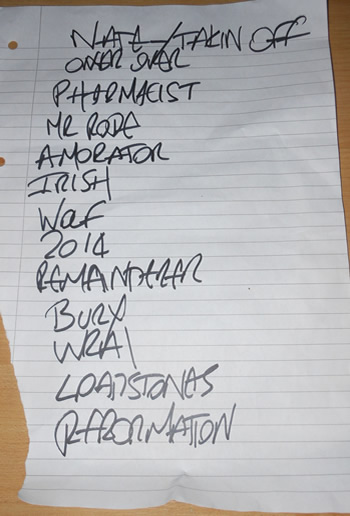 NATE/TAKIN OFF
OVER OVER
PHARMACIST
MR RODE
AMORATOR
IRISH
WOLF
2014
REMAINDERER
BURY
WRAI
LOADSTONES
REFORMATION